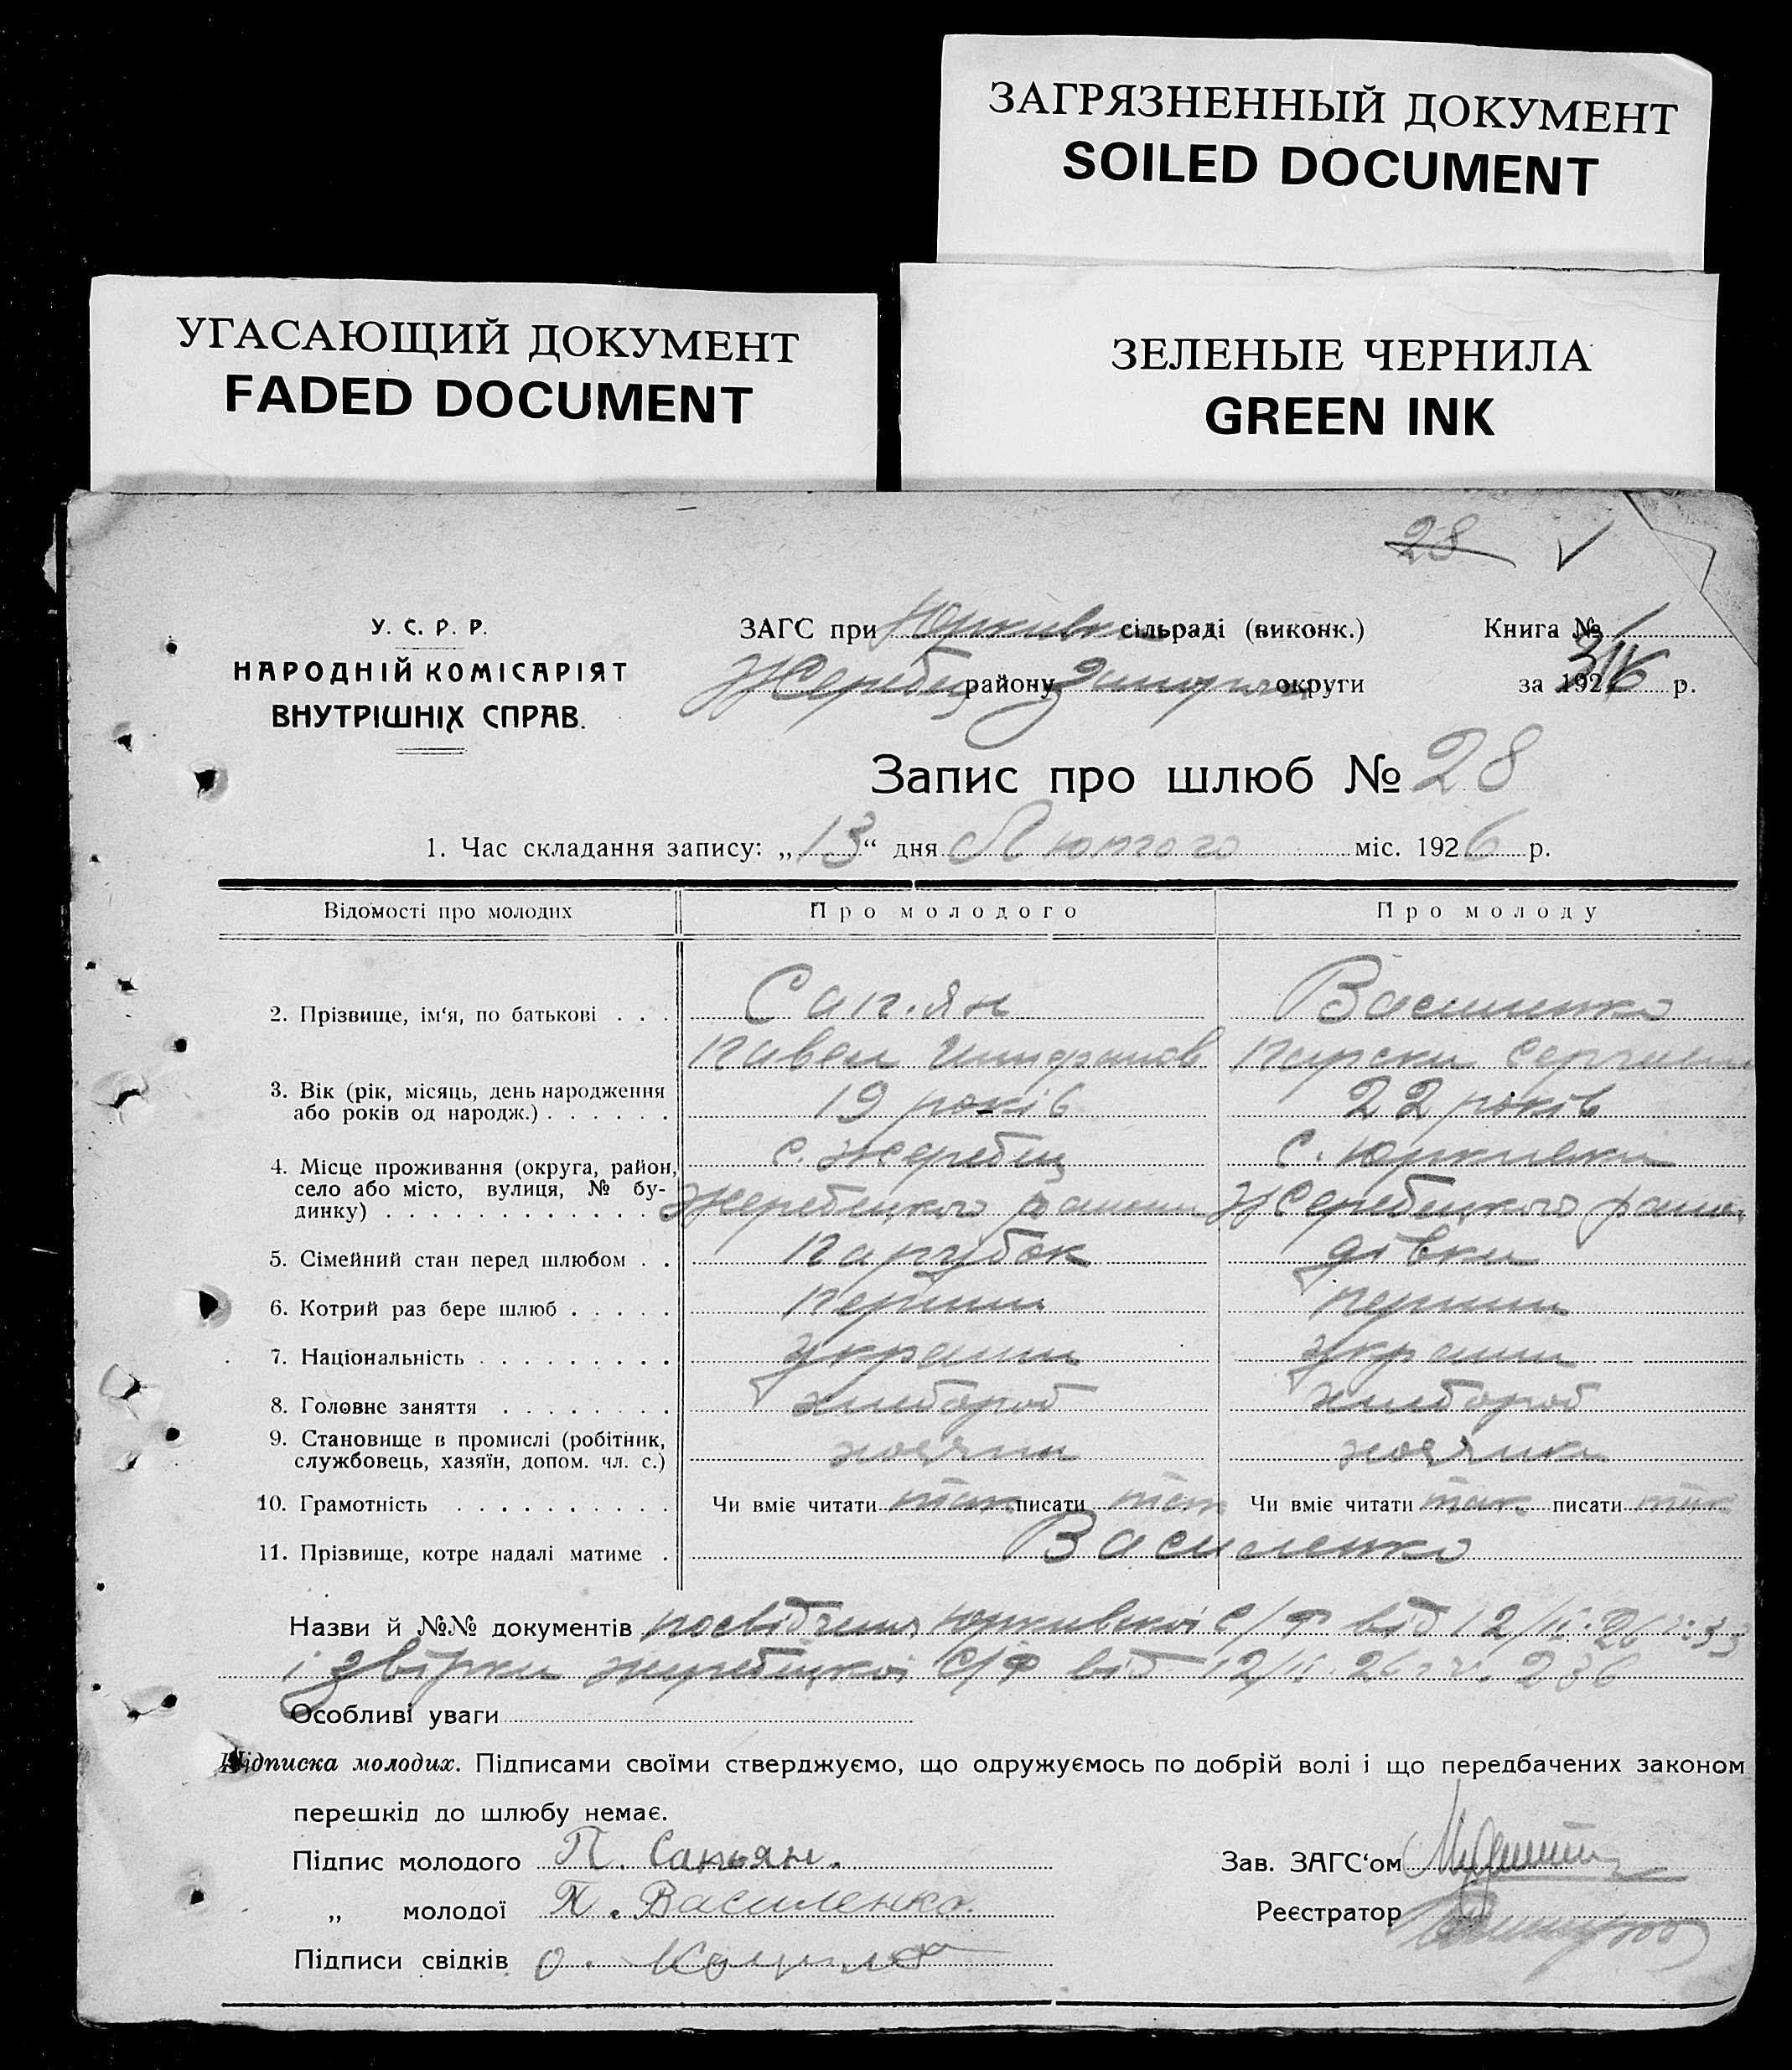 ЗАГРЯЗНЕННЫЙ ДОКУМЕНТ
SOILED DOCUMENT
УГАСАЮЩИЙ ДОКУМЕНТ
FADED DOCUMENT
ЗЕЛЕНЫЕ ЧЕРНИЛА
GREEN INK
28
У. С. Р. Р.
НАРОДНІЙ КОМІСАРІЯТ
ВНУТРІШНІХ СПРАВ.
ЗАГС при сільраді (виконк.)
Книга № 1
Жеребец району округи
за 1926 р.
Запис про шлюб № 28
1. Час складання запису: „13“ дня Лютого міс. 1926 р.
Відомості про молодих Про молодого Про молоду
2. Прізвище, ім‘я, по батькові . . . Сап.ян Василенко
Павел
3. Вік (рік, місяць, день народження
або років од народж.) . . . . . . 19 років 22 років
4. Місце проживання (округа, район, с. Жеребец с. Юркивки
село або місто, вулиця, № бу-
динку) . . . . . . . . . . . . . Жеребецкого Жеребецкого
5. Сімейний стан перед шлюбом . . Парубок дівка
6. Котрий раз бере шлюб . . . .
7. Національність . . . . . . . . .
8. Головне заняття . . . . . . . . хлібороб хлібороб
9. Становище в промислі (робітник,
службовець, хазяїн, допом. чл. с.)
10. Грамотність . . . . . . . . . . Чи вміє читати так писати так Чи вміє читати так писати так
11. Прізвище, котре надалі матиме . Василенко
Назви й №№ документів С/Р від 12/II-26
і С/Р від 12/II-26
Особливі уваги
Підписка молодих. Підписами своїми стверджуємо, що одружуємось по добрій волі і що передбачених законом
перешкід до шлюбу немає.
Підпис молодого П. Сапьян.
Зав. ЗАГС‘ом
„ молодої П. Василенко.
Реєстратор
Підписи свідків О.